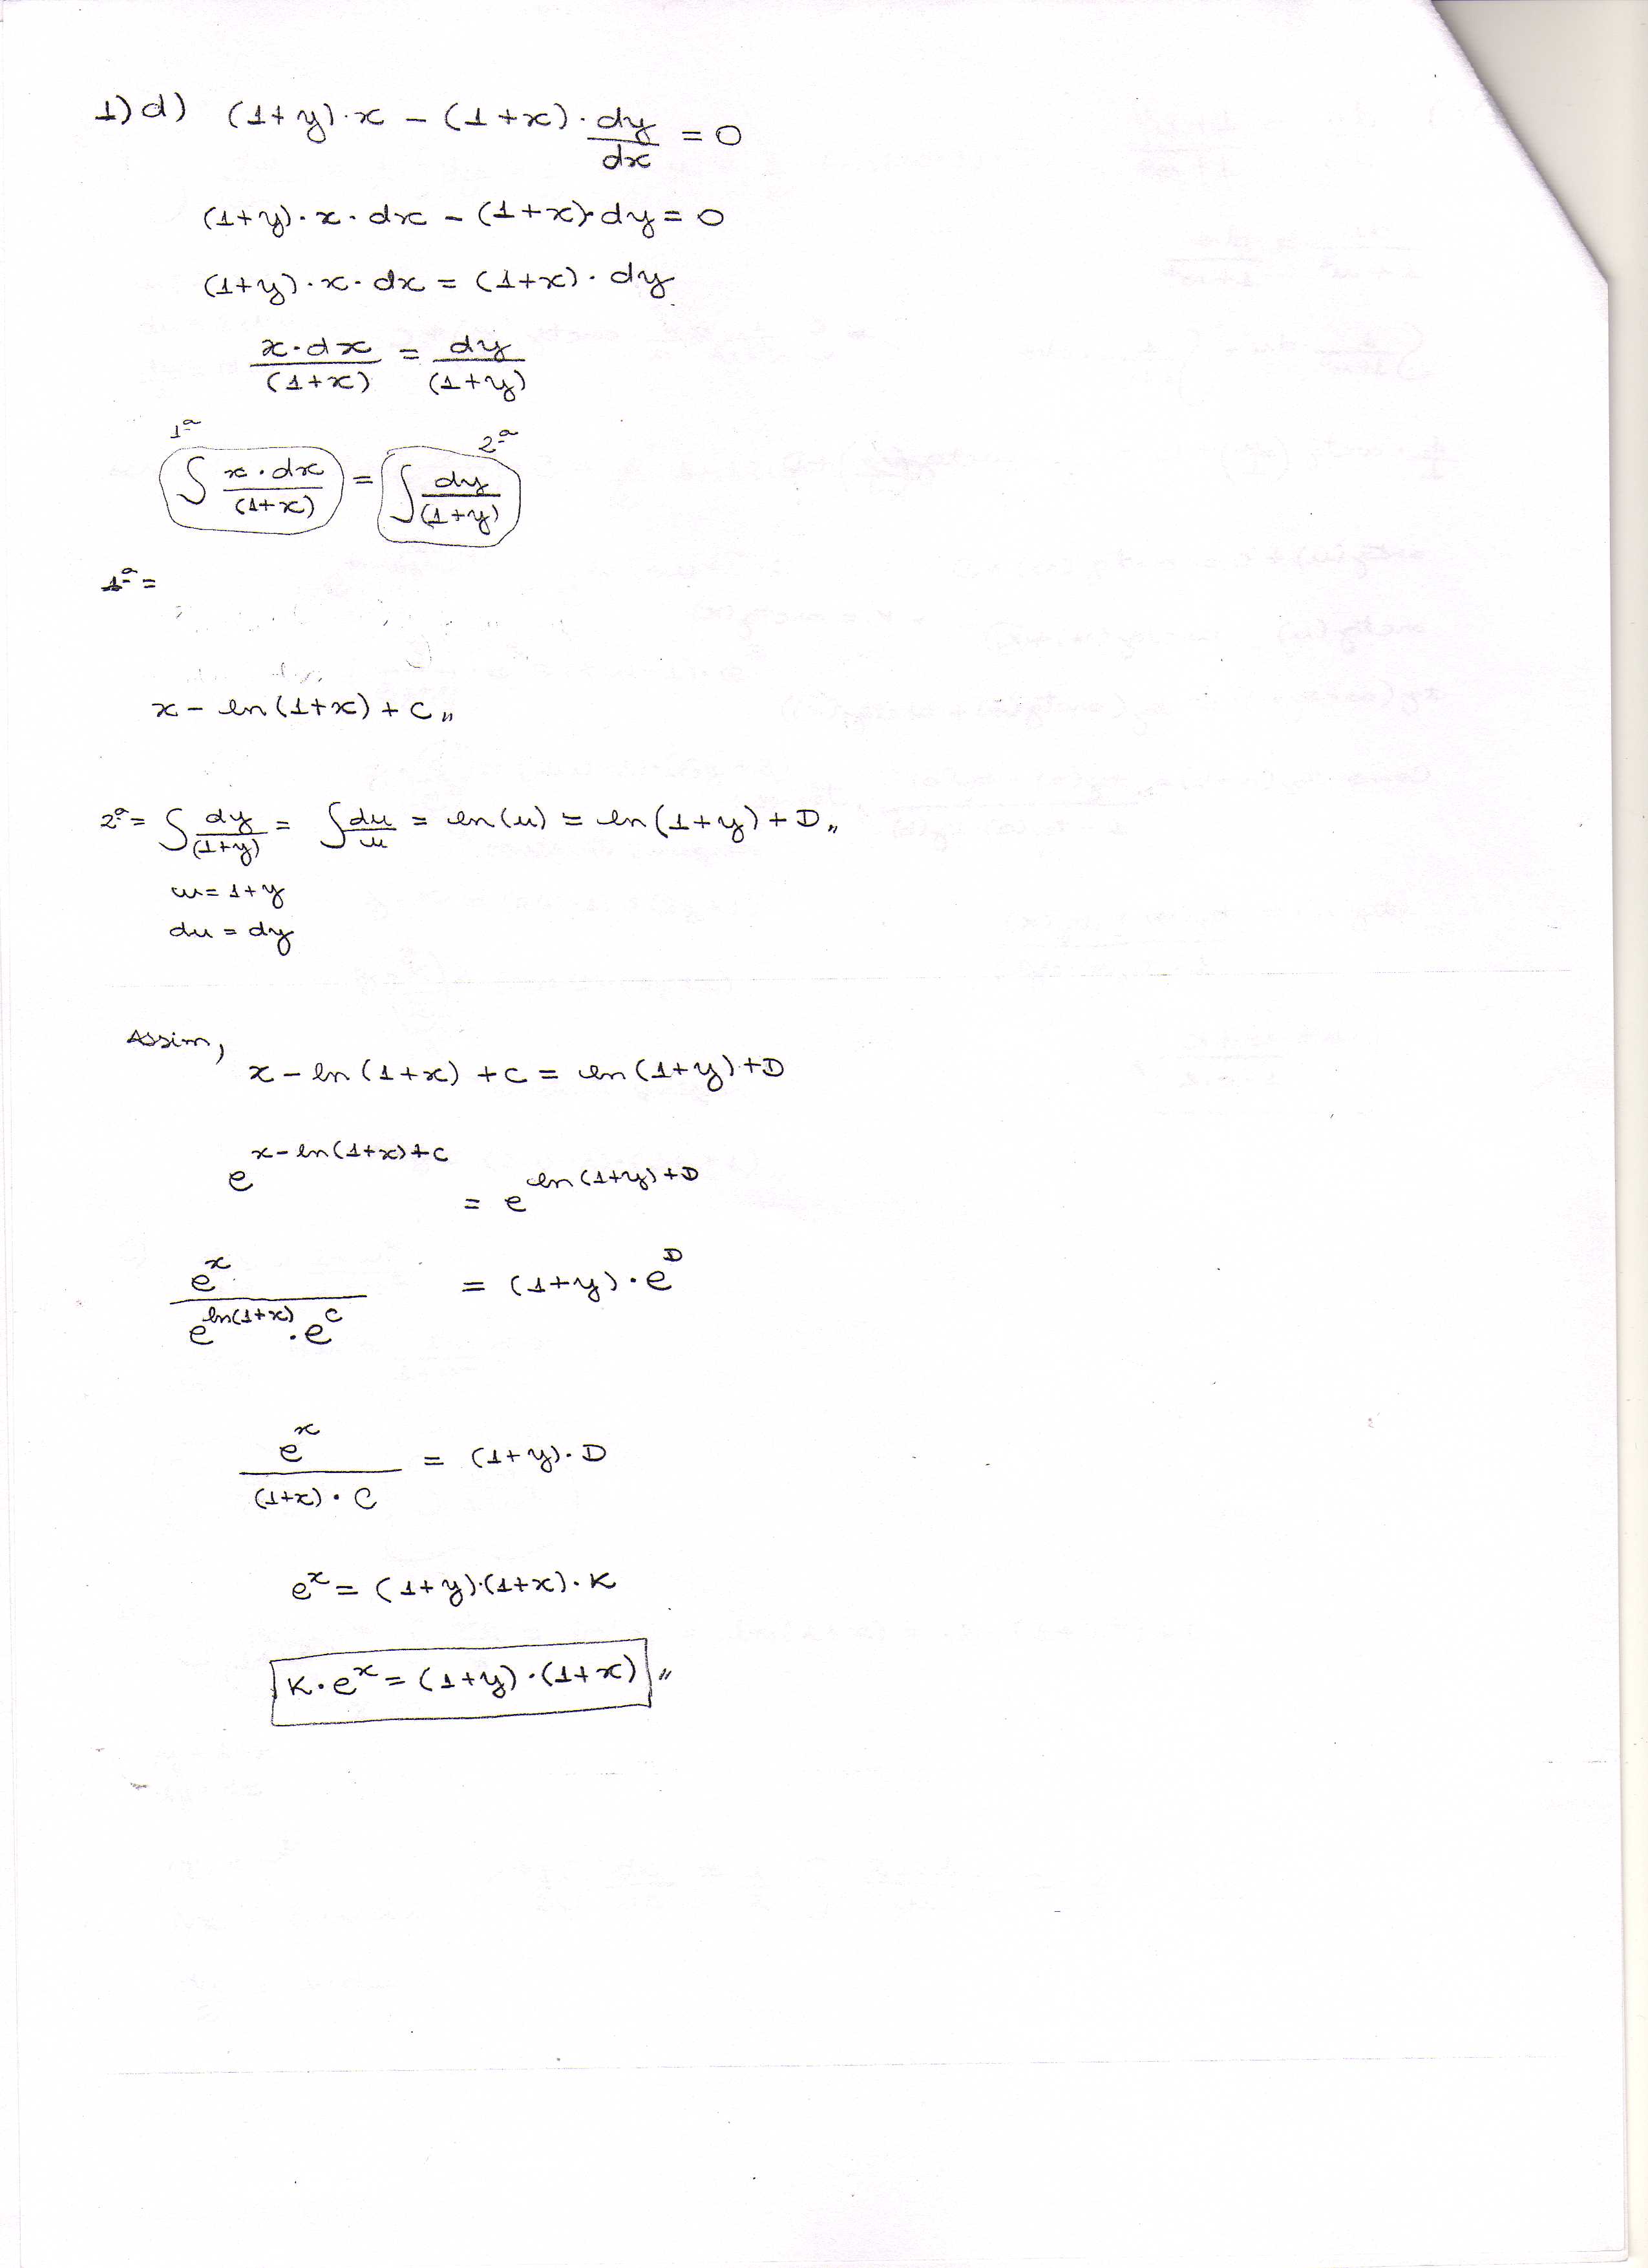 1)d) (1+y)·x - (1+x)·dy/dx = 0
(1+y)·x·dx - (1+x)·dy = 0
(1+y)·x·dx = (1+x)·dy
x·dx/(1+x) = dy/(1+y)
1ª 2ª
∫ x·dx/(1+x) = ∫ dy/(1+y)
1ª =
x - ln(1+x) + C,,
2ª = ∫ dy/(1+y) = ∫ du/u = ln(u) = ln(1+y) + D,,
u = 1+y
du = dy
Assim,
x - ln(1+x) + C = ln(1+y) + D
e^(x - ln(1+x) + C) = e^(ln(1+y) + D)
e^x/(e^(ln(1+x))·e^C) = (1+y)·e^D
e^x/((1+x)·C) = (1+y)·D
e^x = (1+y)·(1+x)·K
K·e^x = (1+y)·(1+x),,